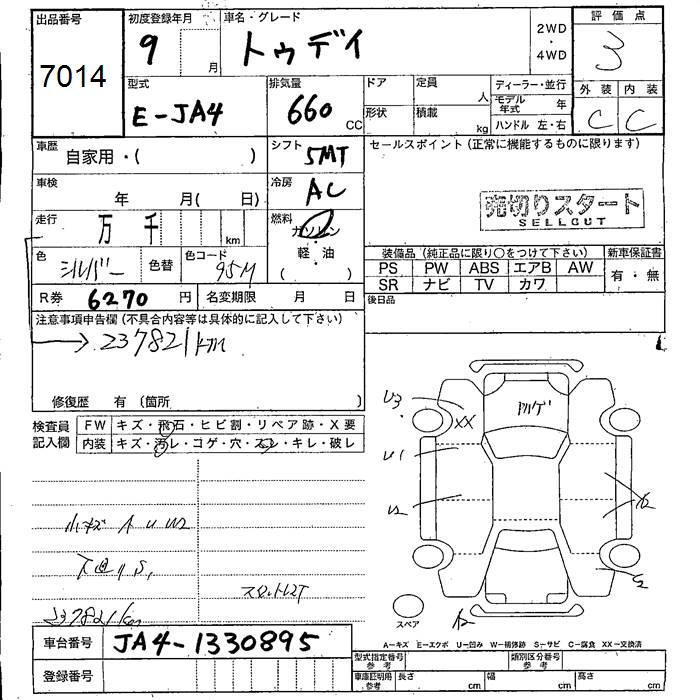 出品番号 7014
初度登録年月 9 月
車名・グレード トゥデイ
2WD・4WD
評価点 3
外装 C 内装 C
型式 E-JA4
排気量 660 CC
ドア 形状
定員 人 積載 kg
ディーラー・並行
モデル年式 年
ハンドル 左・右
車歴 自家用・( )
シフト 5MT
セールスポイント (正常に機能するものに限ります)
車検 年 月( 日)
冷房 AC
売切りスタート
SELLOUT
走行 万 千 km
燃料 ガソリン・軽油 ( )
色 シルバー 色替 色コード 95M
装備品 (純正品に限り〇をつけて下さい) 新車保証書
PS PW ABS エアB AW 有・無
SR ナビ TV カワ
R券 6270 円 名変期限 月 日
後日品
注意事項申告欄 (不具合内容等は具体的に記入して下さい)
237821km
修復歴 有 (箇所 )
検査員記入欄 FW キズ・飛石・ヒビ割・リペア跡・X要
内装 キズ・汚レ・コゲ・穴・スレ・キレ・破レ
U3 XX
U1
U2
小キズ A U W2
237821km
スペア
A-キズ E-エクボ U-凹み W-補修跡 S-サビ C-腐食 XX-交換済
車台番号 JA4-1330895
登録番号
型式指定番号 参考 類別区分番号 参考
車庫証明用 参考 長さ cm 幅 cm 高さ cm